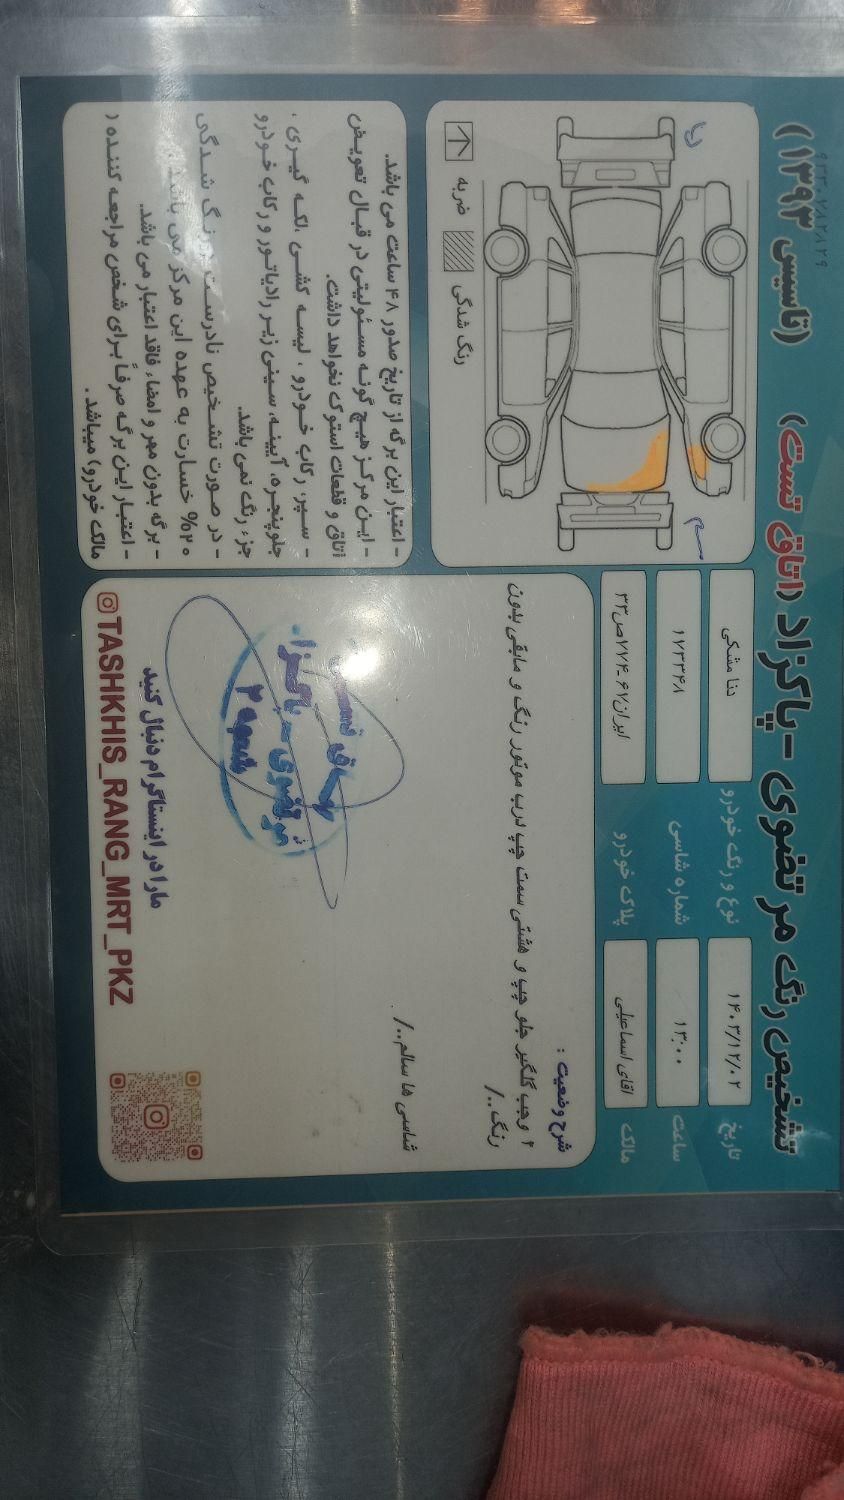 تشخیص رنگ مرتضوی - پاکزاد (اتاق تست) (تاسیس ۱۳۹۳)
تاریخ
۱۴۰۳/۱۲/۰۲
نوع و رنگ خودرو
دنا مشکی
ساعت
۱۳:۰۰
شماره شاسی
۱۷۳۳۴۸
مالک
اقای اسماعیلی
پلاک خودرو
ایران۶۷-۷۷۴ص۳۳
ضربه
رنگ شدگی
شرح وضعیت :
۲ وجب گلگیر جلو چپ و هشتی سمت چپ درب موتور رنگ و مابقی بدون
رنگ../
شاسی ها سالم../
- اعتبار این برگه از تاریخ صدور ۴۸ ساعت می باشد.
- این مرکز هیچ گونه مسئولیتی در قبال تعویض
اتاق و قطعات استوک نخواهد داشت.
- سپر، رکاب خودرو ، لیسه کشی ،لکه گیری ،
جلوپنجره، آیینه، سینی زیر رادیاتور و رکاب خودرو
جزء رنگ نمی باشد.
- در صورت تشخیص نادرست رنگ شدگی
۲۰% خسارت به عهده این مرکز می باشد.
- برگه بدون مهر و امضاء فاقد اعتبار می باشد.
- اعتبار این برگه صرفاً برای شخص مراجعه کننده (
مالک خودرو) میباشد .
مرتضوی - پاکزاد
شعبه ۲
مارا در اینستاگرام دنبال کنید
TASHKHIS_RANG_MRT_PKZ